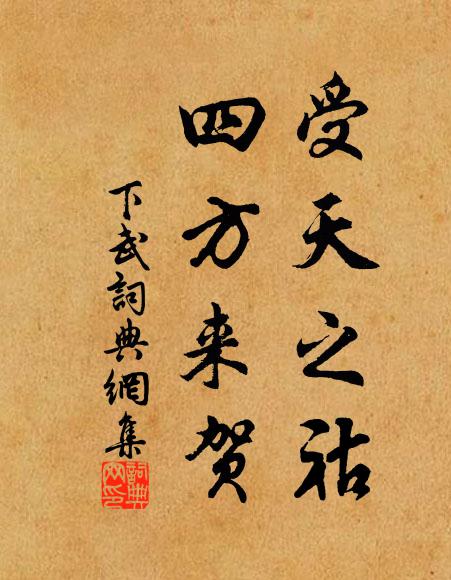 受天之祜
四方来贺
下武詞典網集
詞典
网印